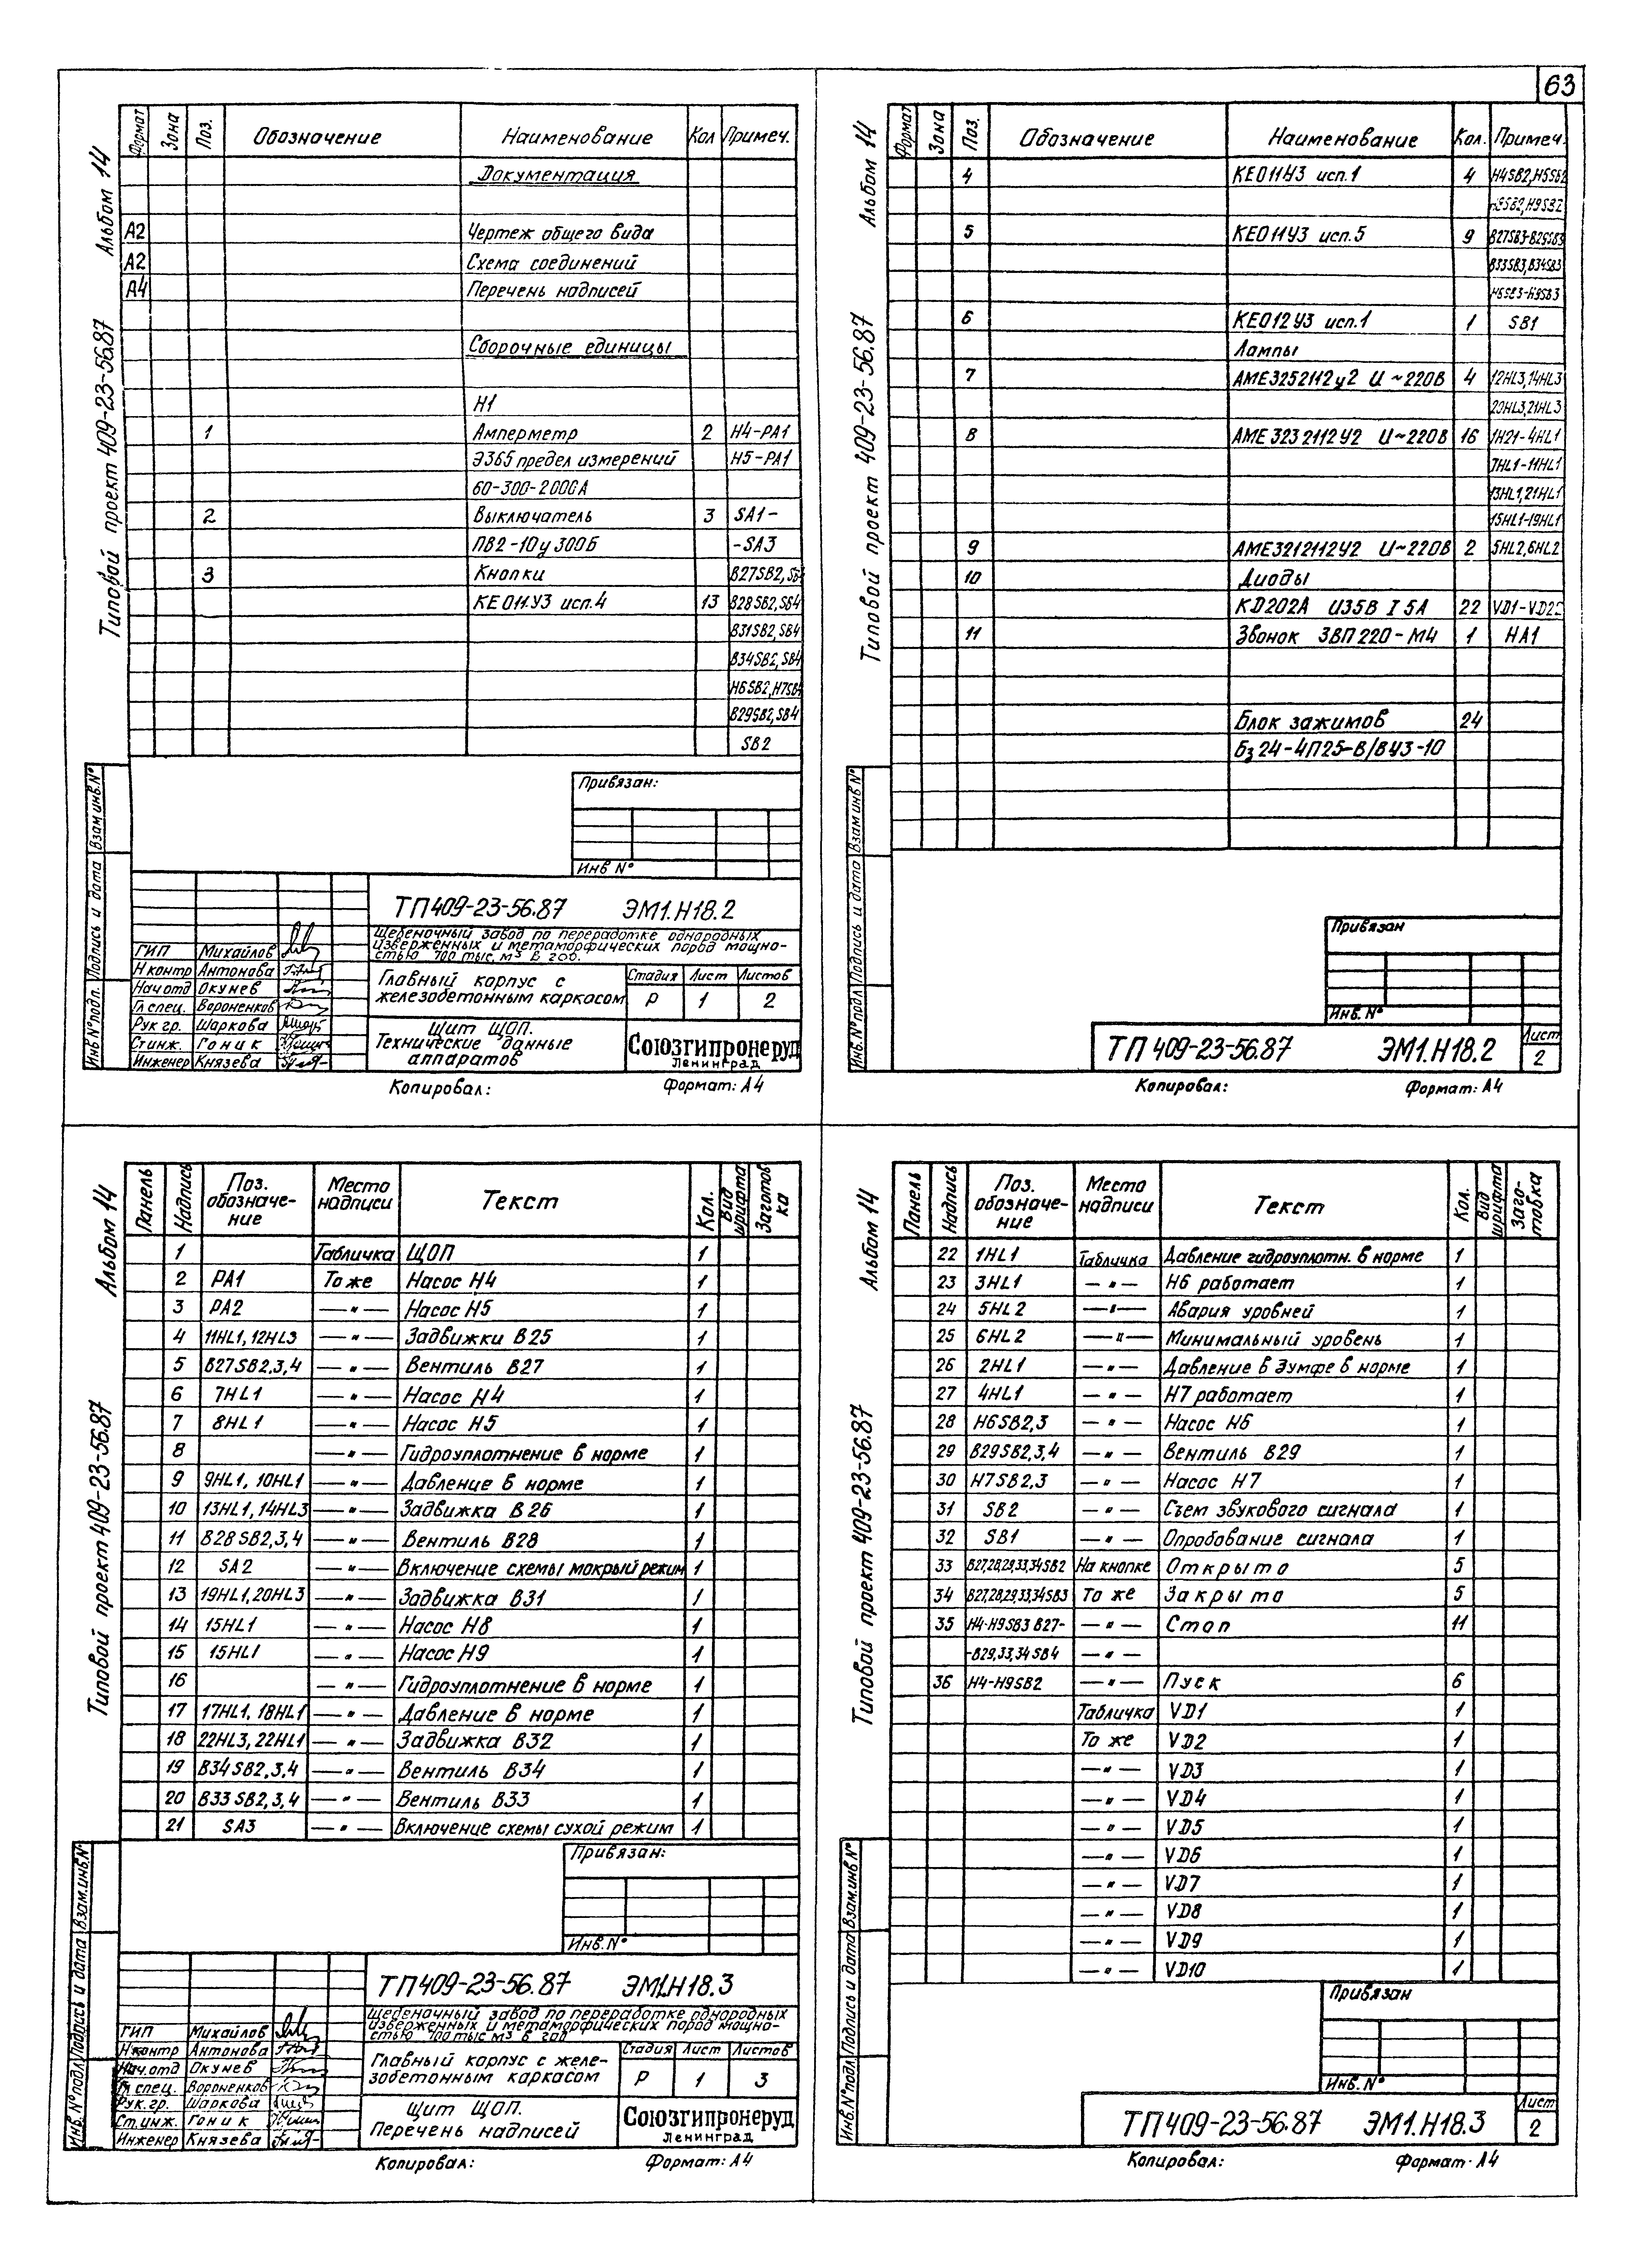 63
Альбом 14
Типовой проект 409-23-56.87
Формат Зона Поз. Обозначение Наименование Кол Примеч.
Документация
А2 Чертеж общего вида
А2 Схема соединений
А4 Перечень надписей
Сборочные единицы
Н1
1 Амперметр 2 Н4-РА1
Э365 предел измерений Н5-РА1
60-300-2000А
2 Выключатель 3 SA1-
ПВ2-10у300Б -SA3
3 Кнопки В27SB2, SB4
КЕ011У3 исп.4 13 В28SB2, SB4
В31SB2, SB4
В34SB2, SB4
Н6SB2, Н7SB4
В29SB2, SB4
SB2
Привязан:
Инв №
Инв № подл. Подпись и дата Взам инв. №
ТП409-23-56.87 ЭМ1.Н18.2
Щебеночный завод по переработке однородных
изверженных и метаморфических пород мощно-
стью 700 тыс. м³ в год.
ГИП Михайлов
Н контр Антонова
Нач отд Окунев
Гл спец. Вороненков
Рук гр. Шаркова
Ст инж. Гоник
Инженер Князева
Главный корпус с
железобетонным каркасом
Стадия Лист Листов
Р 1 2
Щит ЩОП.
Технические данные
аппаратов
Союзгипронеруд
Ленинград
Копировал: Формат: А4
Альбом 14
Типовой проект 409-23-56.87
Формат Зона Поз. Обозначение Наименование Кол. Примеч.
4 КЕ011У3 исп.1 4 Н4SB2, Н5SB2
Н8SB2, Н9SB2
5 КЕ011У3 исп.5 9 В27SB3-В29SB3
В33SB3, В34SB3
Н6SB3-Н9SB3
6 КЕ012У3 исп.1 1 SB1
Лампы
7 АМЕ3252112у2 U~220В 4 12HL3, 14HL3
20HL3, 21HL3
8 АМЕ3232112У2 U~220В 16 1Н21-4HL1
7HL1-11HL1
13HL1, 21HL1
15HL1-19HL1
9 АМЕ3212112У2 U~220В 2 5HL2, 6HL2
10 Диоды
КD202А U35В I 5А 22 VD1-VD22
11 Звонок ЗВП220-М4 1 НА1
Блок зажимов 24
Бз24-4П25-В/ВУ3-10
Инв. № подл Подпись и дата Взам инв №
Привязан
Инв. №
ТП409-23-56.87 ЭМ1.Н18.2
Лист
2
Копировал: Формат: А4
Альбом 14
Типовой проект 409-23-56.87
Панель Надпись Поз. обозначе-ние Место надписи Текст Кол. Вид шрифта Заготов ка
1 Табличка ЩОП 1
2 РА1 То же Насос Н4 1
3 РА2 —"— Насос Н5 1
4 11HL1, 12HL3 —"— Задвижки В25 1
5 В27SB2,3,4 —"— Вентиль В27 1
6 7HL1 —"— Насос Н4 1
7 8HL1 —"— Насос Н5 1
8 —"— Гидроуплотнение в норме 1
9 9HL1, 10HL1 —"— Давление в норме 1
10 13HL1, 14HL3 —"— Задвижка В26 1
11 В28SB2,3,4 —"— Вентиль В28 1
12 SA2 —"— Включение схемы мокрый режим 1
13 19HL1, 20HL3 —"— Задвижка В31 1
14 15HL1 —"— Насос Н8 1
15 15HL1 —"— Насос Н9 1
16 —"— Гидроуплотнение в норме 1
17 17HL1, 18HL1 —"— Давление в норме 1
18 22HL3, 22HL1 —"— Задвижка В32 1
19 В34SB2,3,4 —"— Вентиль В34 1
20 В33SB2,3,4 —"— Вентиль В33 1
21 SA3 —"— Включение схемы сухой режим 1
Привязан:
Инв. №
Инв. № подл Подпись и дата Взам.инв.№
ТП409-23-56.87 ЭМ1.Н18.3
Щебеночный завод по переработке однородных
изверженных и метаморфических пород мощно-
стью 700 тыс м³ в год
ГИП Михайлов
Н контр Антонова
Нач. отд Окунев
Гл спец. Вороненков
Рук. гр. Шаркова
Ст. инж. Гоник
Инженер Князева
Главный корпус с желе-
зобетонным каркасом
Стадия Лист Листов
Р 1 3
Щит ЩОП.
Перечень надписей
Союзгипронеруд
Ленинград
Копировал: Формат: А4
Альбом 14
Типовой проект 409-23-56.87
Панель Надпись Поз. обозначе-ние Место надписи Текст Кол. Вид шрифта Заго-товка
22 1HL1 Табличка Давление гидроуплотн. в норме 1
23 3HL1 —"— Н6 работает 1
24 5HL2 —"— Авария уровней 1
25 6HL2 —"— Минимальный уровень 1
26 2HL1 —"— Давление в зумфе в норме 1
27 4HL1 —"— Н7 работает 1
28 Н6SB2,3 —"— Насос Н6 1
29 В29SB2,3,4 —"— Вентиль В29 1
30 Н7SB2,3 —"— Насос Н7 1
31 SB2 —"— Съем звукового сигнала 1
32 SB1 —"— Опробование сигнала 1
33 В27,28,29,33,34SB2 На кнопке Открыто 5
34 В27,28,29,33,34SB3 То же Закрыто 5
35 Н4-Н9SB3 В27- —"— Стоп 11
-В29,33,34 SB4 —"—
36 Н4-Н9SB2 —"— Пуск 6
Табличка VD1 1
То же VD2 1
—"— VD3 1
—"— VD4 1
—"— VD5 1
—"— VD6 1
—"— VD7 1
—"— VD8 1
—"— VD9 1
—"— VD10 1
Инв.№ подл Подпись и дата Взам.инв.№
Привязан
Инв. №
ТП409-23-56.87 ЭМ1.Н18.3
Лист
2
Копировал: Формат А4